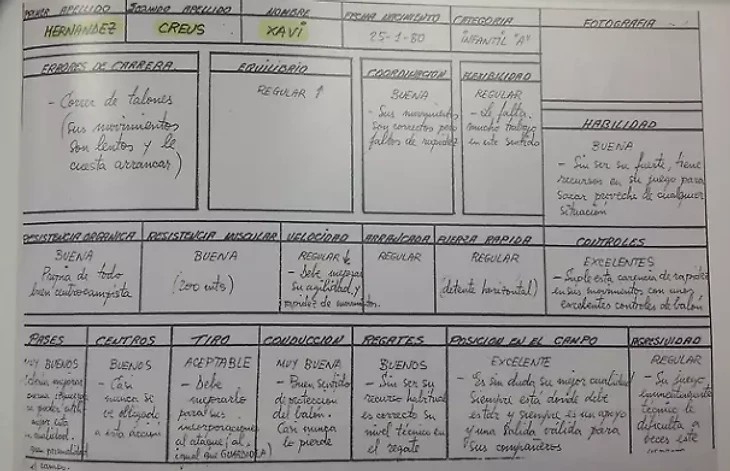 APELLIDO
SEGUNDO APELLIDO
NOMBRE
FECHA NACIMIENTO
CATEGORIA
FOTOGRAFIA
HERNANDEZ
CREUS
XAVI
25-1-80
INFANTIL "A"
ERRORES DE CARRERA
- Correr de talones
(sus movimientos
son lentos y le
cuesta arrancar)
EQUILIBRIO
REGULAR ↑
COORDINACION
BUENA
- Sus movimientos
son correctos pero
faltos de rapidez
FLEXIBILIDAD
REGULAR
- Le falta
mucho trabajo
en este sentido
HABILIDAD
BUENA
- Sin ser su fuerte, tiene
recursos en su juego para
sacar provecho de cualquier
situacion
RESISTENCIA ORGANICA
BUENA
Propia de todo
buen centrocampista
RESISTENCIA MUSCULAR
BUENA
(200 mts)
VELOCIDAD
REGULAR ↓
- Debe mejorar
su agilidad y
rapidez de movimientos.
ARRANCADA
REGULAR
FUERZA RAPIDA
REGULAR
(detente horizontal)
CONTROLES
EXCELENTES
- Suple esta carencia de rapidez
en sus movimientos con unos
excelentes controles de balón
PASES
MUY BUENOS
mejorar
CENTROS
BUENOS
- Casi
nunca se
ve obligado
a esta acción
TIRO
ACEPTABLE
- Debe
mejorarlo
para sus
incorporaciones
al ataque (al
igual que GUARDIOLA)
CONDUCCION
MUY BUENA
- Buen sentido
de proteccion
del balón.
Casi nunca
lo pierde
REGATES
BUENOS
- Sin ser su
recurso habitual
es correcto su
nivel técnico en
el regate
POSICION EN EL CAMPO
EXCELENTE
- Es sin duda su mejor cualidad
Siempre está donde debe
estar y siempre es un apoyo
y una salida válida para
sus compañeros
AGRESIVIDAD
REGULAR
- Su juego
eminentemente
técnico le
dificulta a
veces este